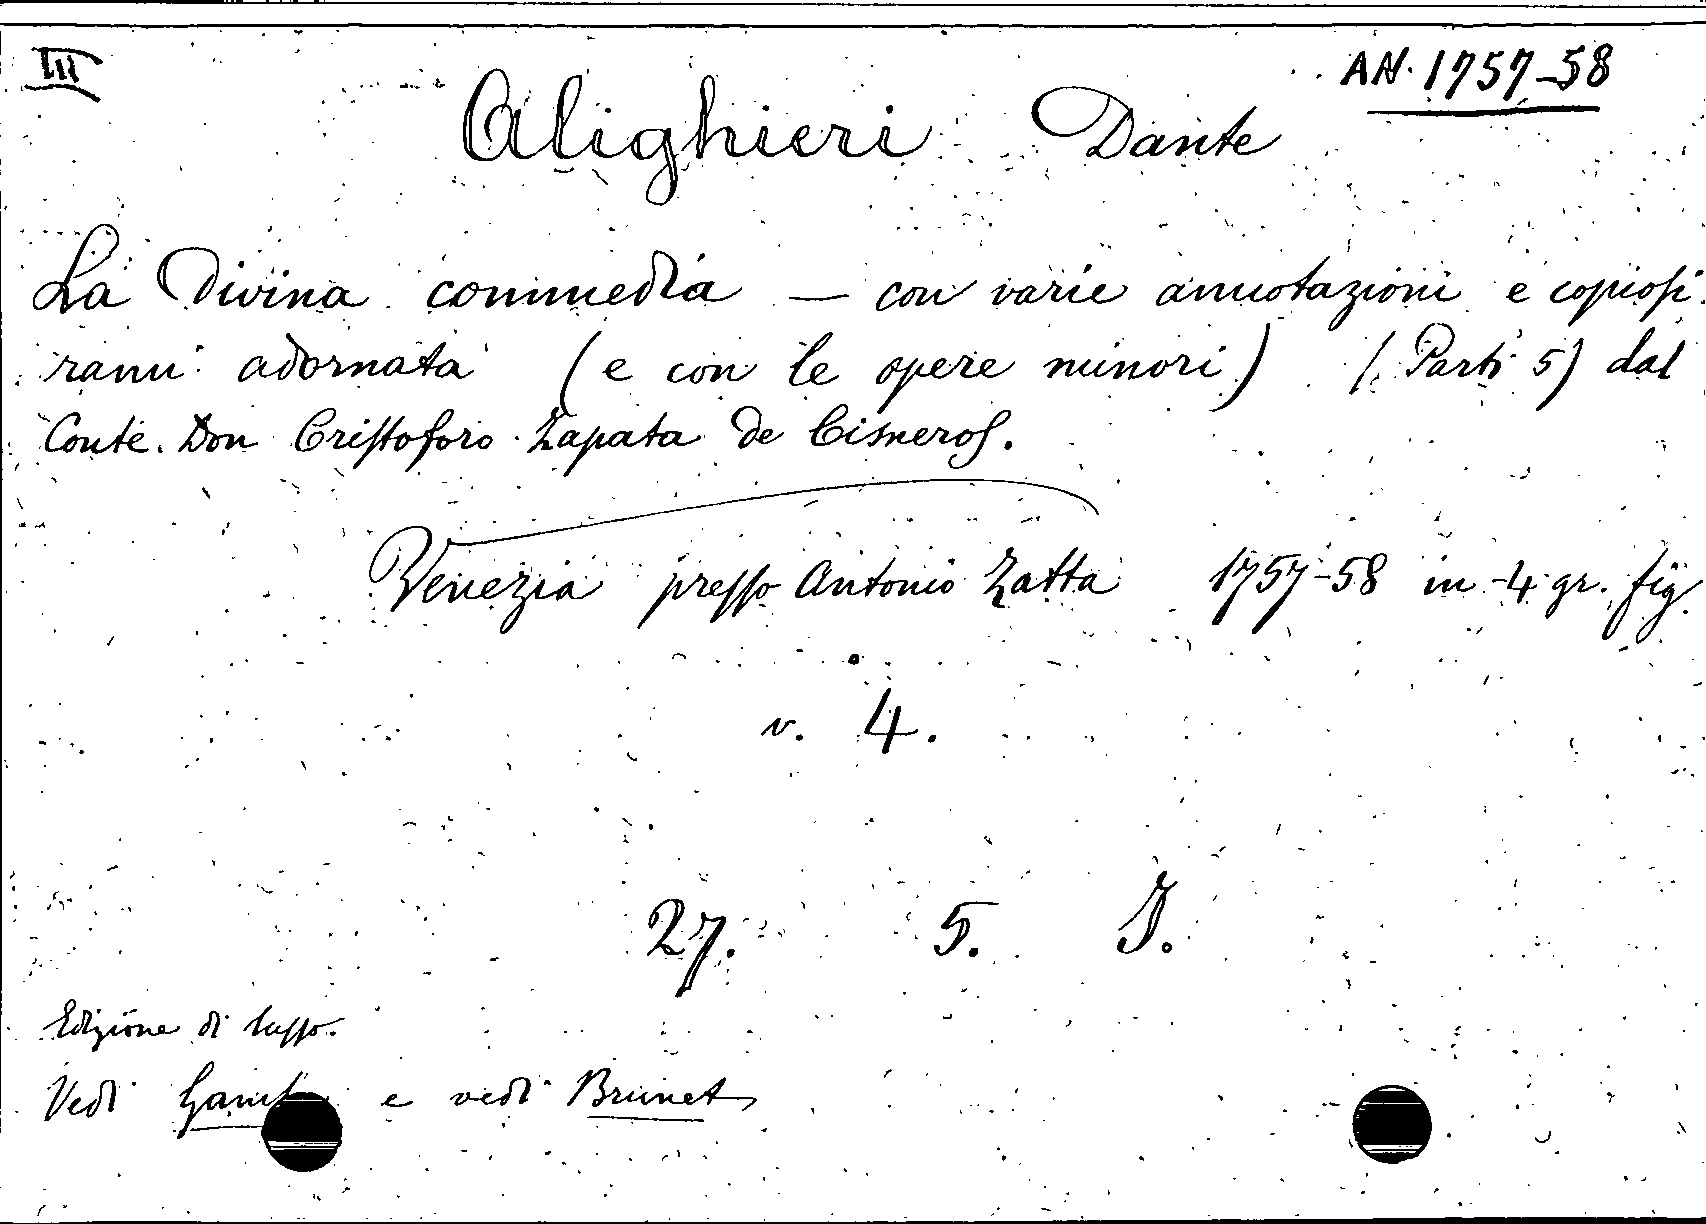 III
AN. 1757-58
Alighieri Dante
La Divina commedia — con varie annotazioni e copiosi
rami adornata (e con le opere minori) (Parti 5) dal
Conte Don Cristoforo Zapata de Cisneros.
Venezia presso Antonio Zatta 1757-58 in-4 gr. fig.
v. 4.
27. 5. I.
Edizione di lusso.
Vedi e vedi Brunet